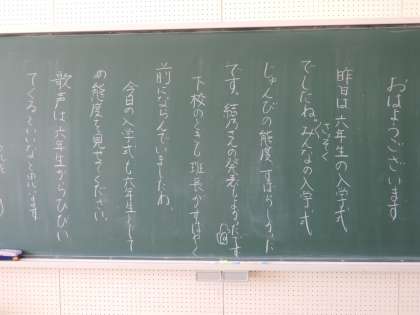 おはようございます
昨日は六年生の入学式
でしたね。みんなの入学式
さっそく
じゅんびの態度、すばらしかった
です。結乃さんの発表もよかったです
下校のとき班長がすばやく
前にならんでいましたね。
今日の入学式も六年生として
の態度を見せてください。
歌声は六年生からひびい
てくるといいなと思います